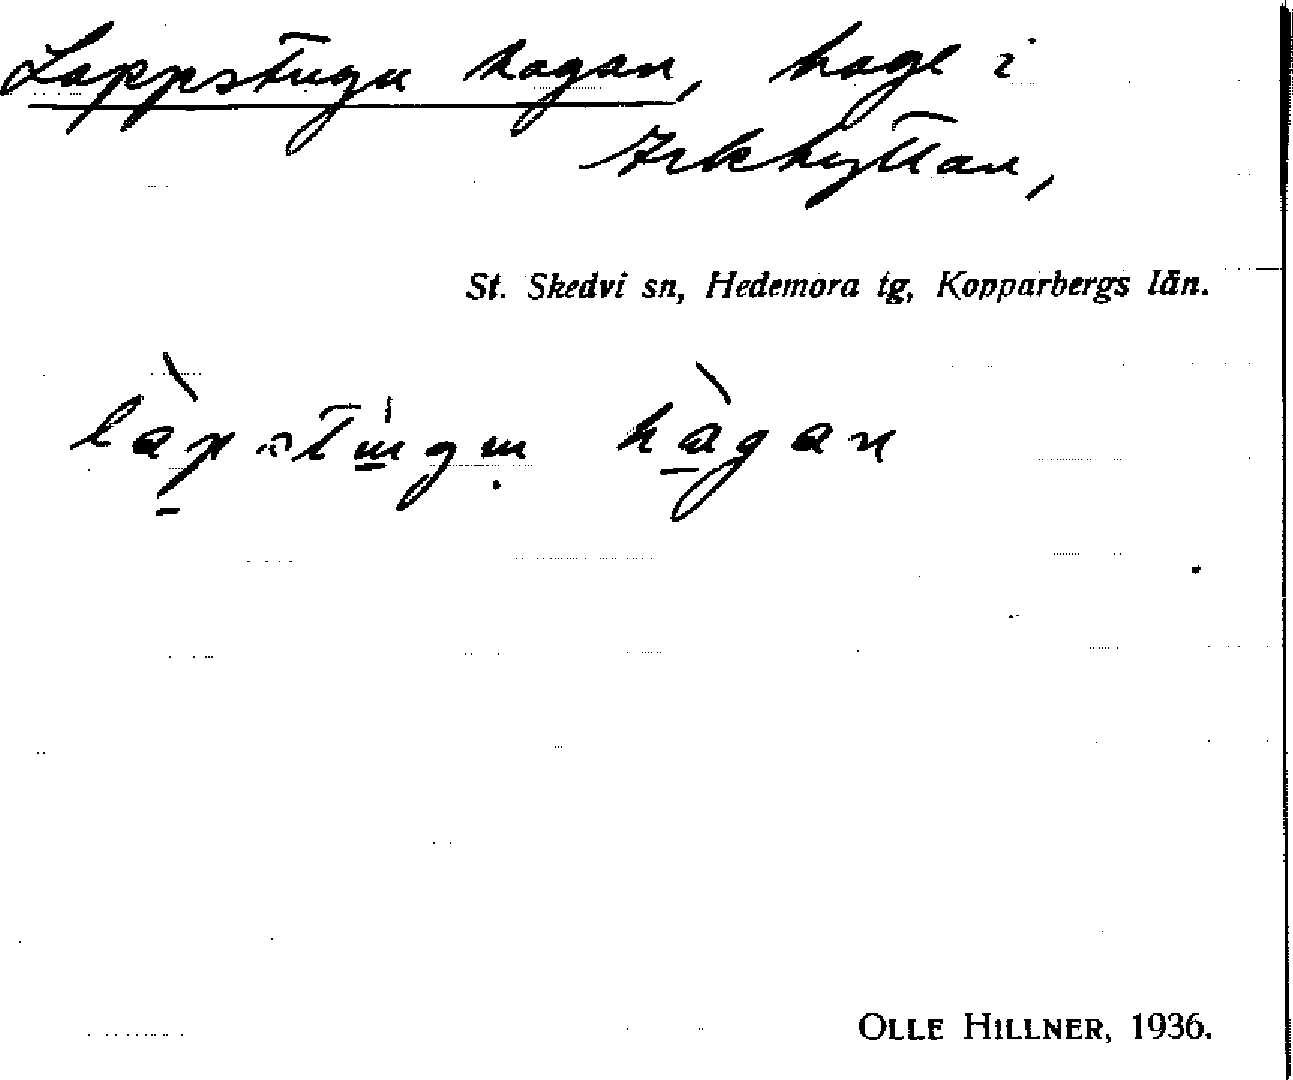 Lappstugu hagan, hage i
Arkhyttan,
St. Skedvi sn, Hedemora tg, Kopparbergs län.
hàgan
OLLE HILLNER, 1936.